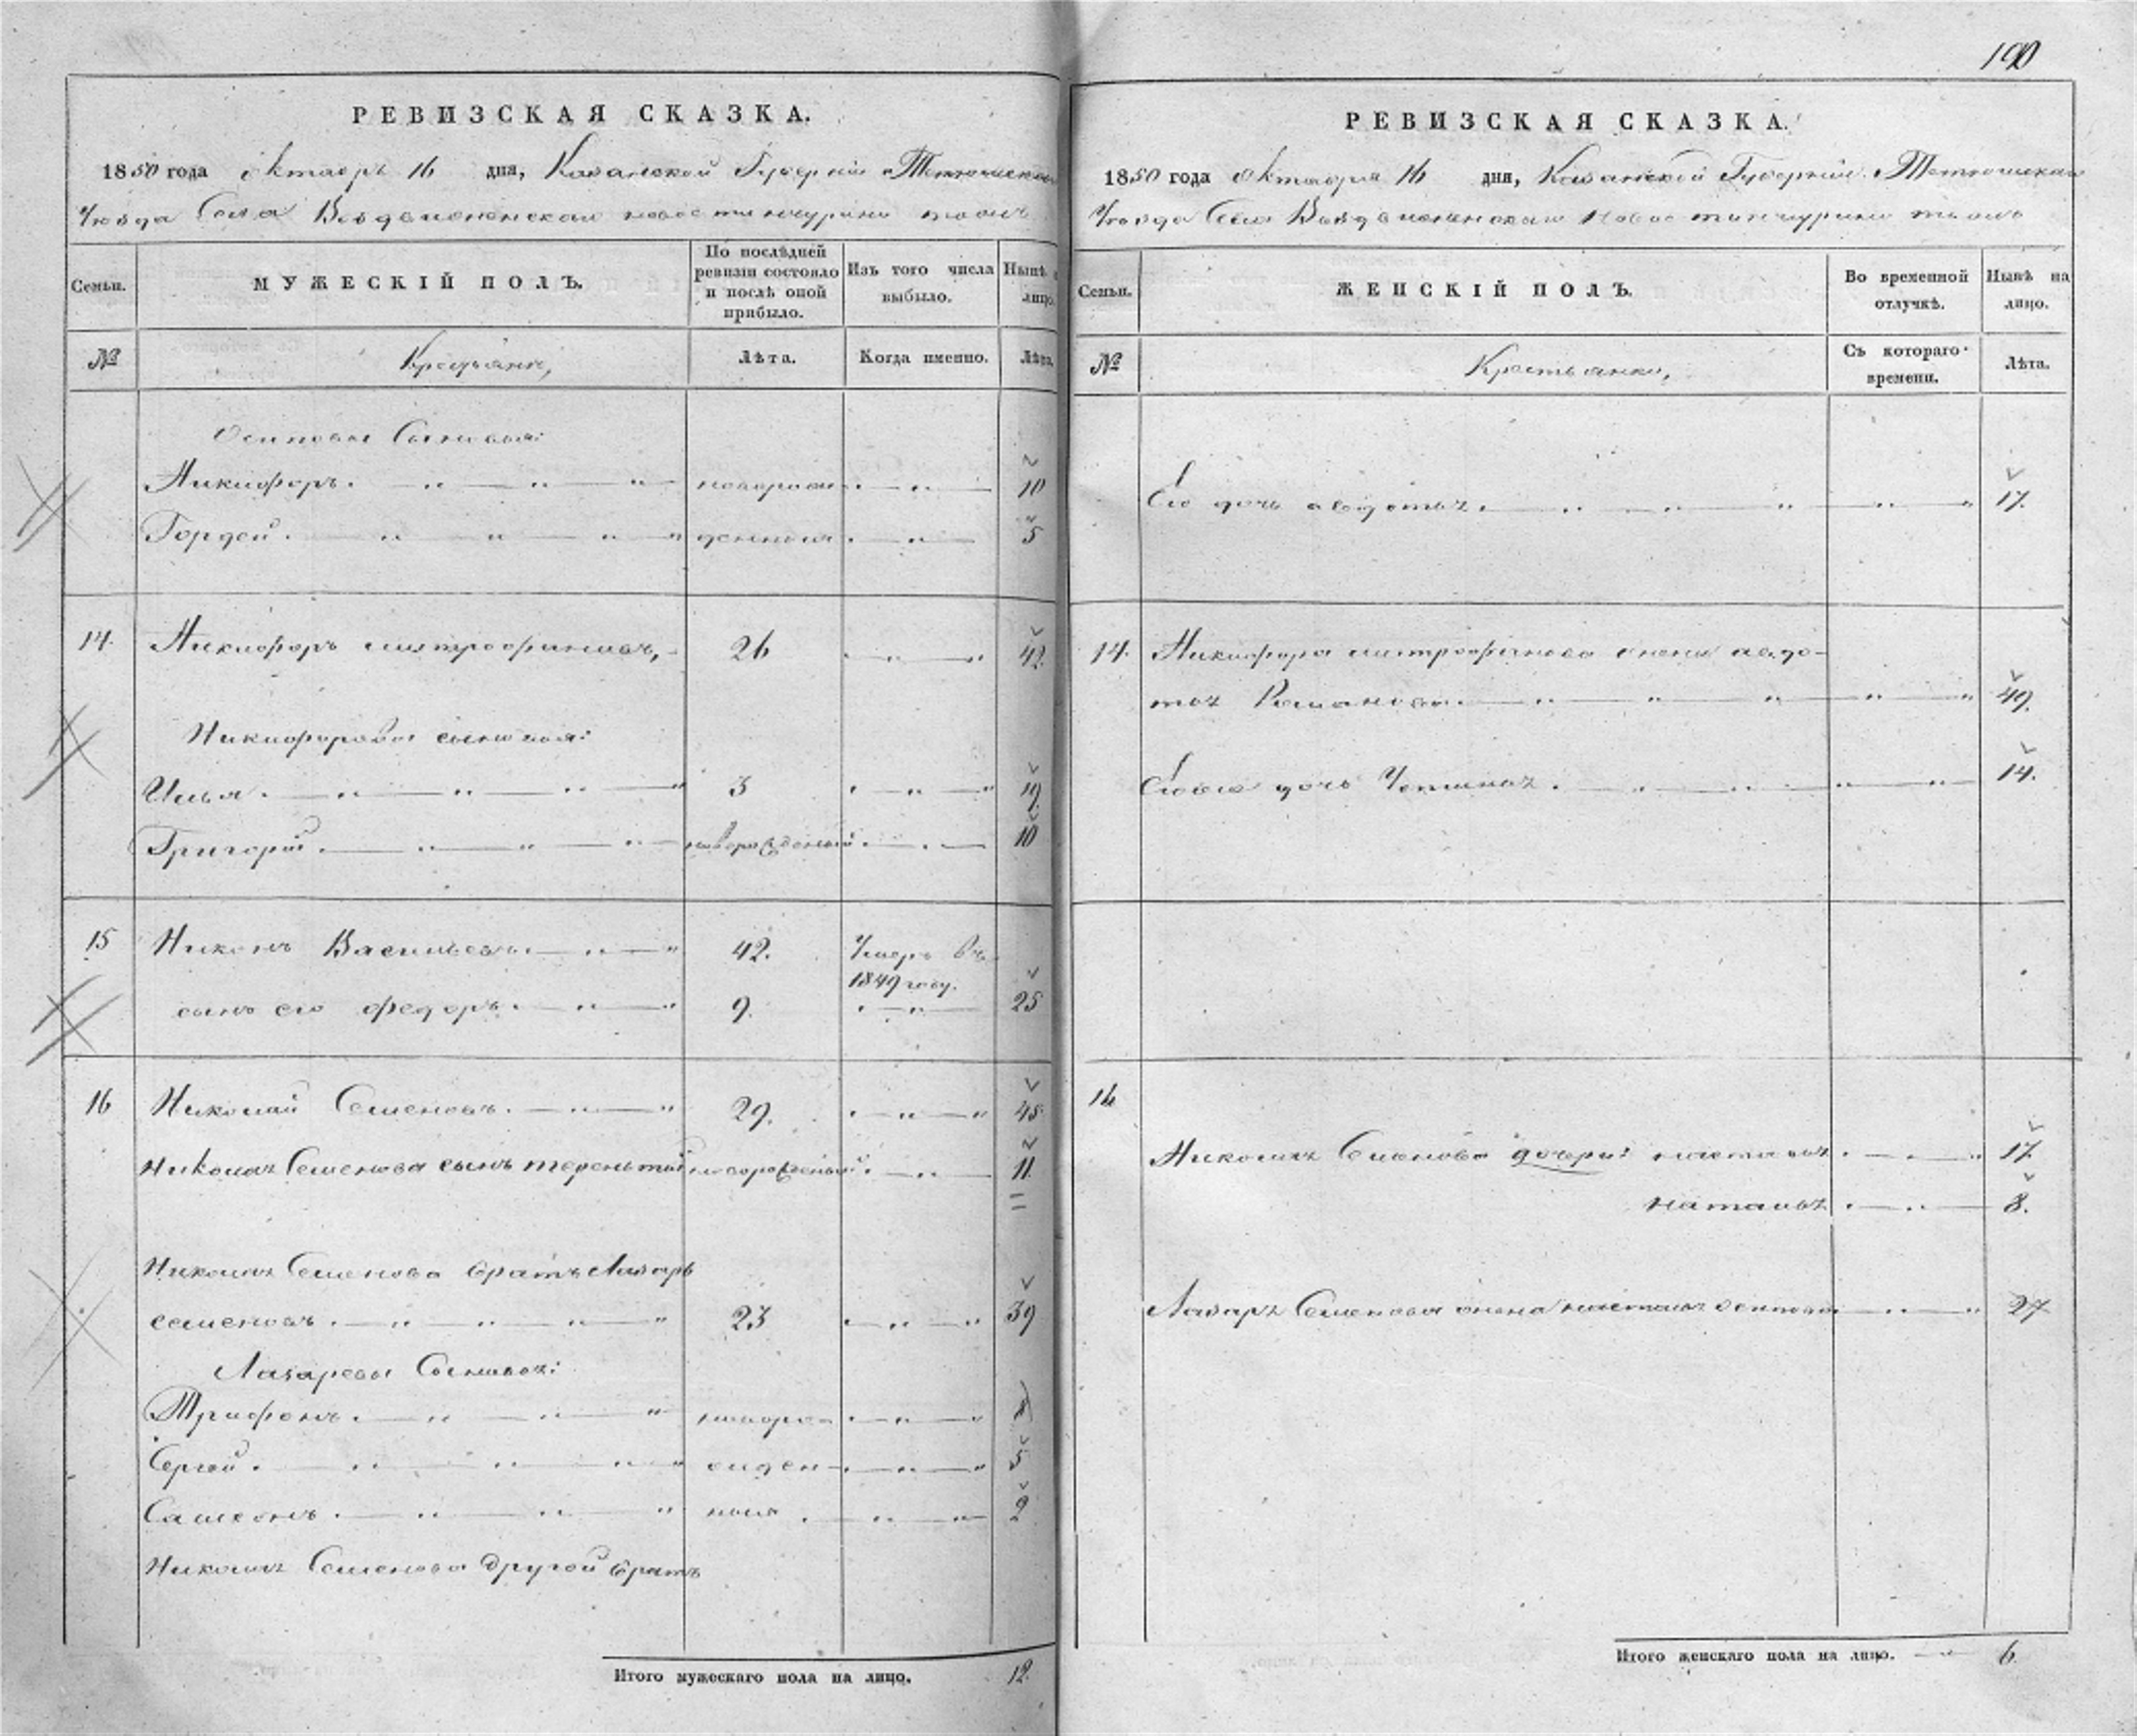 190
РЕВИЗСКАЯ СКАЗКА.
1850 года октабрь 16 дня, Казанской Губерніи Тетюшскаго
Уѣзда Села Воздвиженскаго тожъ
Семьи.
МУЖЕСКІЙ ПОЛЪ.
По послѣдней ревизіи состояло и послѣ оной прибыло.
Изъ того числа выбыло.
Нынѣ лицо.
№
Крестьяне,
Лѣта.
Когда именно.
Лѣта.
Осиповы Сыновья:
Никифоръ. новорож 10
Гордей. денныя 5
14. Никифоръ митрофановъ, 26 42.
Никифоровы сыновья:
Илья. 3 19.
Григорій. новорожденный 10
15 Никонъ Васильевъ. 42. Умеръ въ
1849 году.
сынъ его федоръ. 9. 25
16 Николай Семеновъ. 29. 45.
Николая Семенова сынъ терентій новорожденый. 11.
Николая Семенова братъ Лазарь
семеновъ. 23 39
Лазаревы Сыновья:
Трифонъ. новоро
Сергей. жден 5
Самсонъ. ныя 2
Николая Семенова другой братъ
Итого мужескаго пола на лицо. 12.
РЕВИЗСКАЯ СКАЗКА.
1850 года октабря 16 дня, Казанской Губерніи Тетюшскаго
Уѣзда Села Воздвиженскаго тожъ
Семьи.
ЖЕНСКІЙ ПОЛЪ.
Во временной отлучкѣ.
Нынѣ на лицо.
№
Крестьянки,
Съ котораго времени.
Лѣта.
Его дочь авдотья. 17.
14. Никифора митрофанова жена авдо-
тья Романова. 49.
Его дочь Устинья. 14.
16
Николая Семенова дочери: настасья. 17
наталья. 8.
Лазаря Семенова жена настасья осипова 27
Итого женскаго пола на лицо. 6.